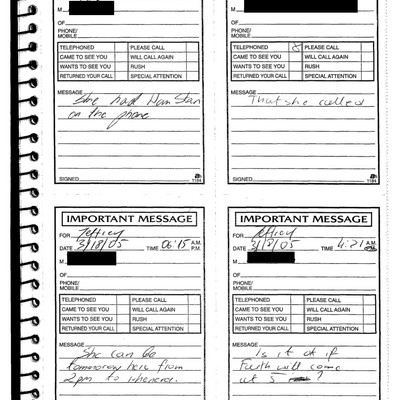 M
OF
PHONE/
MOBILE
TELEPHONED PLEASE CALL
CAME TO SEE YOU WILL CALL AGAIN
WANTS TO SEE YOU RUSH
RETURNED YOUR CALL SPECIAL ATTENTION
MESSAGE
She had
on the phone
SIGNED 1184
OF
PHONE/
MOBILE
TELEPHONED X PLEASE CALL
CAME TO SEE YOU WILL CALL AGAIN
WANTS TO SEE YOU RUSH
RETURNED YOUR CALL SPECIAL ATTENTION
MESSAGE
That she called
SIGNED 1184
IMPORTANT MESSAGE
FOR Jeffrey
DATE 3/18/05 TIME 06:15 A.M. P.M.
M
OF
PHONE/
MOBILE
TELEPHONED PLEASE CALL
CAME TO SEE YOU WILL CALL AGAIN
WANTS TO SEE YOU RUSH
RETURNED YOUR CALL SPECIAL ATTENTION
MESSAGE
She can be
tomorrow here from
2pm to whenever.
IMPORTANT MESSAGE
FOR Jeffrey
DATE 3/8/05 TIME 4:21 A.M. P.M.
M
OF
PHONE/
MOBILE
TELEPHONED PLEASE CALL
CAME TO SEE YOU WILL CALL AGAIN
WANTS TO SEE YOU RUSH
RETURNED YOUR CALL SPECIAL ATTENTION
MESSAGE
Is it ok if
Faith will come
at 5 ?